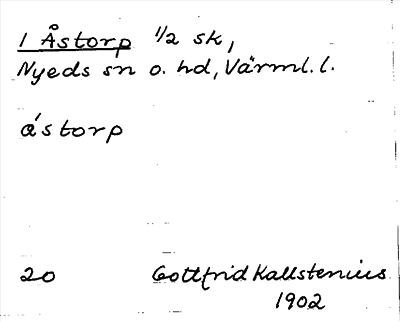 1 Åstorp 1/2 sk,
Nyeds sn o. hd, Värml. l.
åstorp
20 Gottfrid Kallstenius
1902